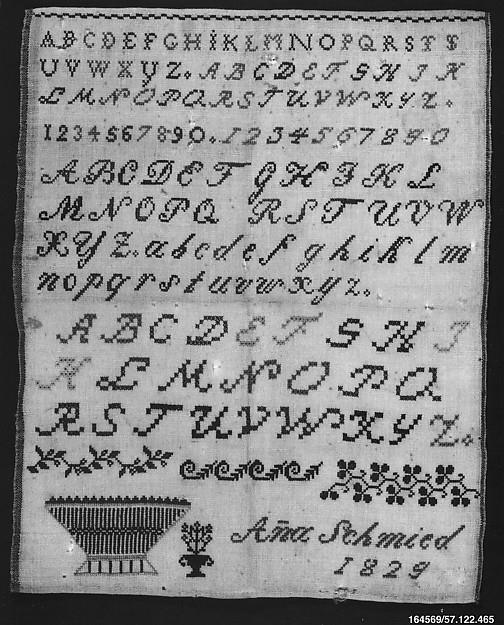 ABCDEFGHIKLMNOPQRST
UVWXYZ. ABCDEFGHIK
LMNOPQRSTUVWXYZ.
1234567890. 1234567890
ABCDEF GHIKL
MNOPQ RST UVW
XYZ. abcdef ghiklm
nopqrstuvwxyz.
ABCDEFGHI
KLMNOPQ
RSTUVWXYZ.
Aña Schmied
1829
164569/57.122.465